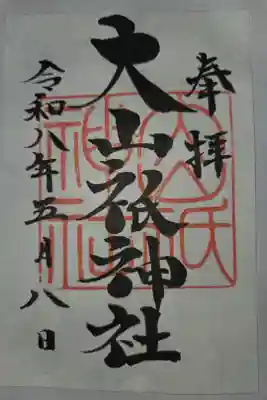 奉拝
大山祇神社
令和八年五月八日
大山祇神社